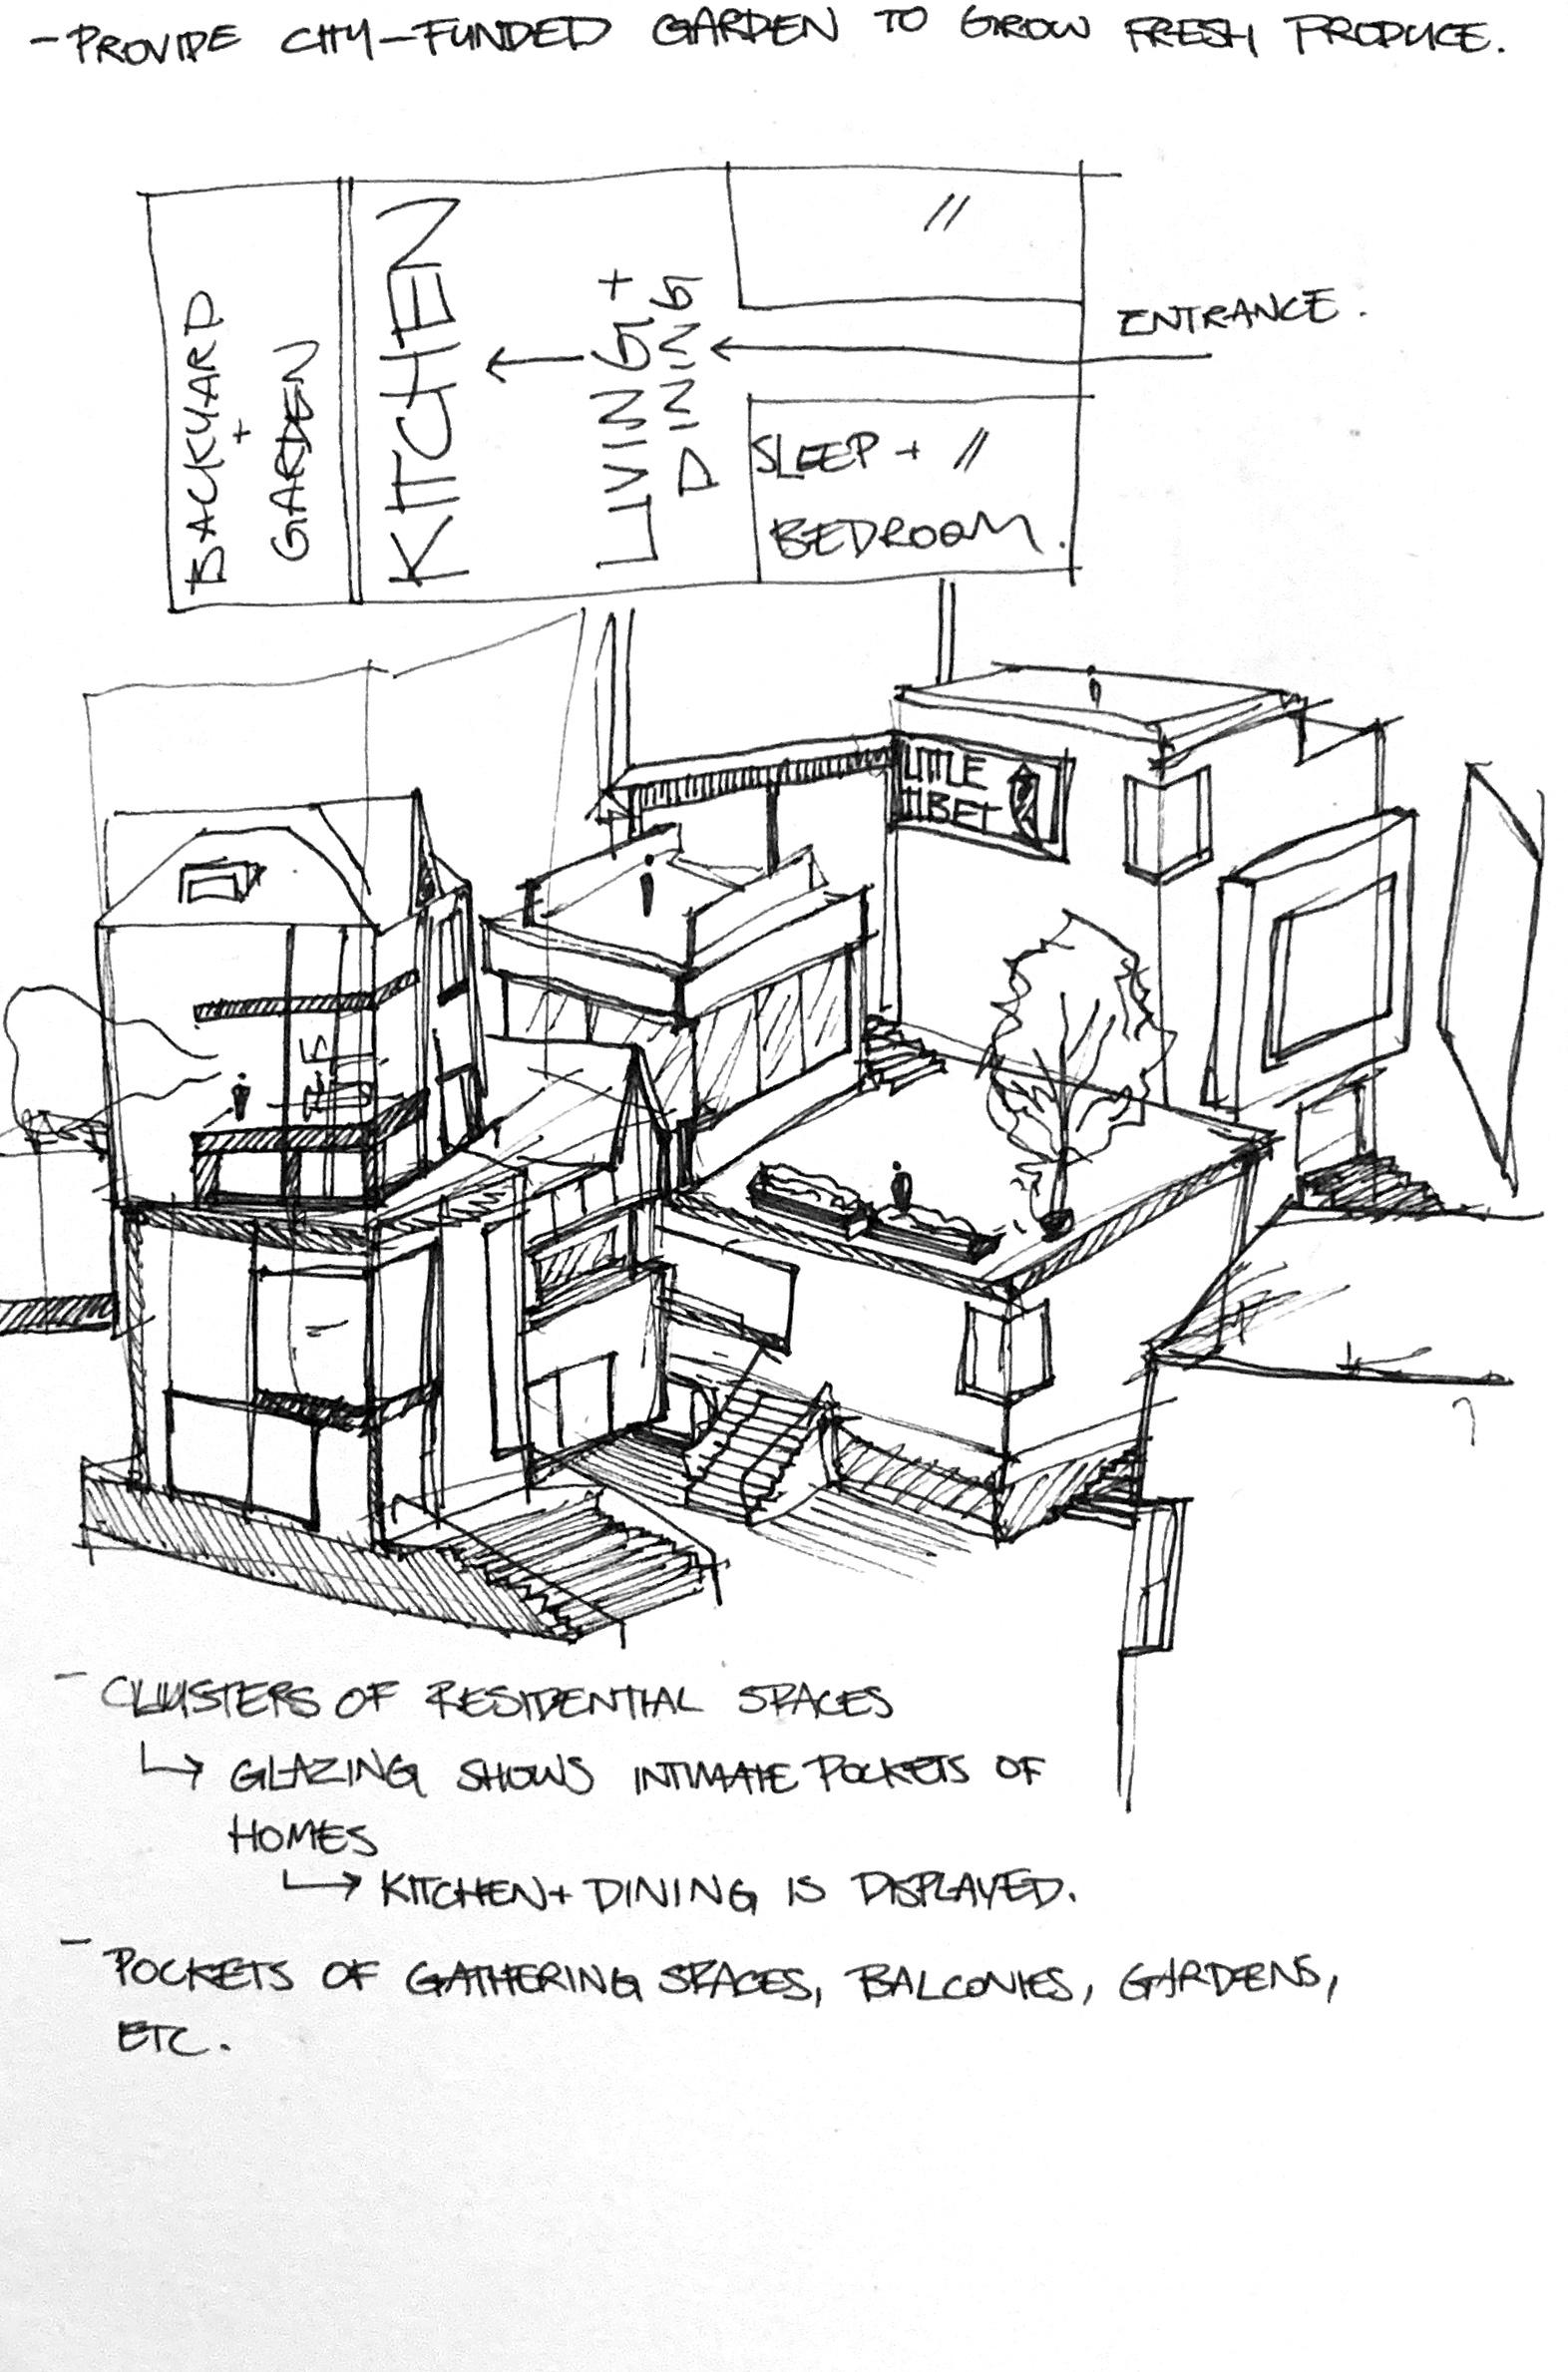 - PROVIDE CITY-FUNDED GARDEN TO GROW FRESH PRODUCE.
BACKYARD
+
GARDEN
KITCHEN
LIVING +
DINING
//
ENTRANCE.
SLEEP + //
BEDROOM.
LITTLE
TIBET
- CLUSTERS OF RESIDENTIAL SPACES
↳ GLAZING SHOWS INTIMATE POCKETS OF
HOMES
↳ KITCHEN + DINING IS DISPLAYED.
- POCKETS OF GATHERING SPACES, BALCONIES, GARDENS,
ETC.